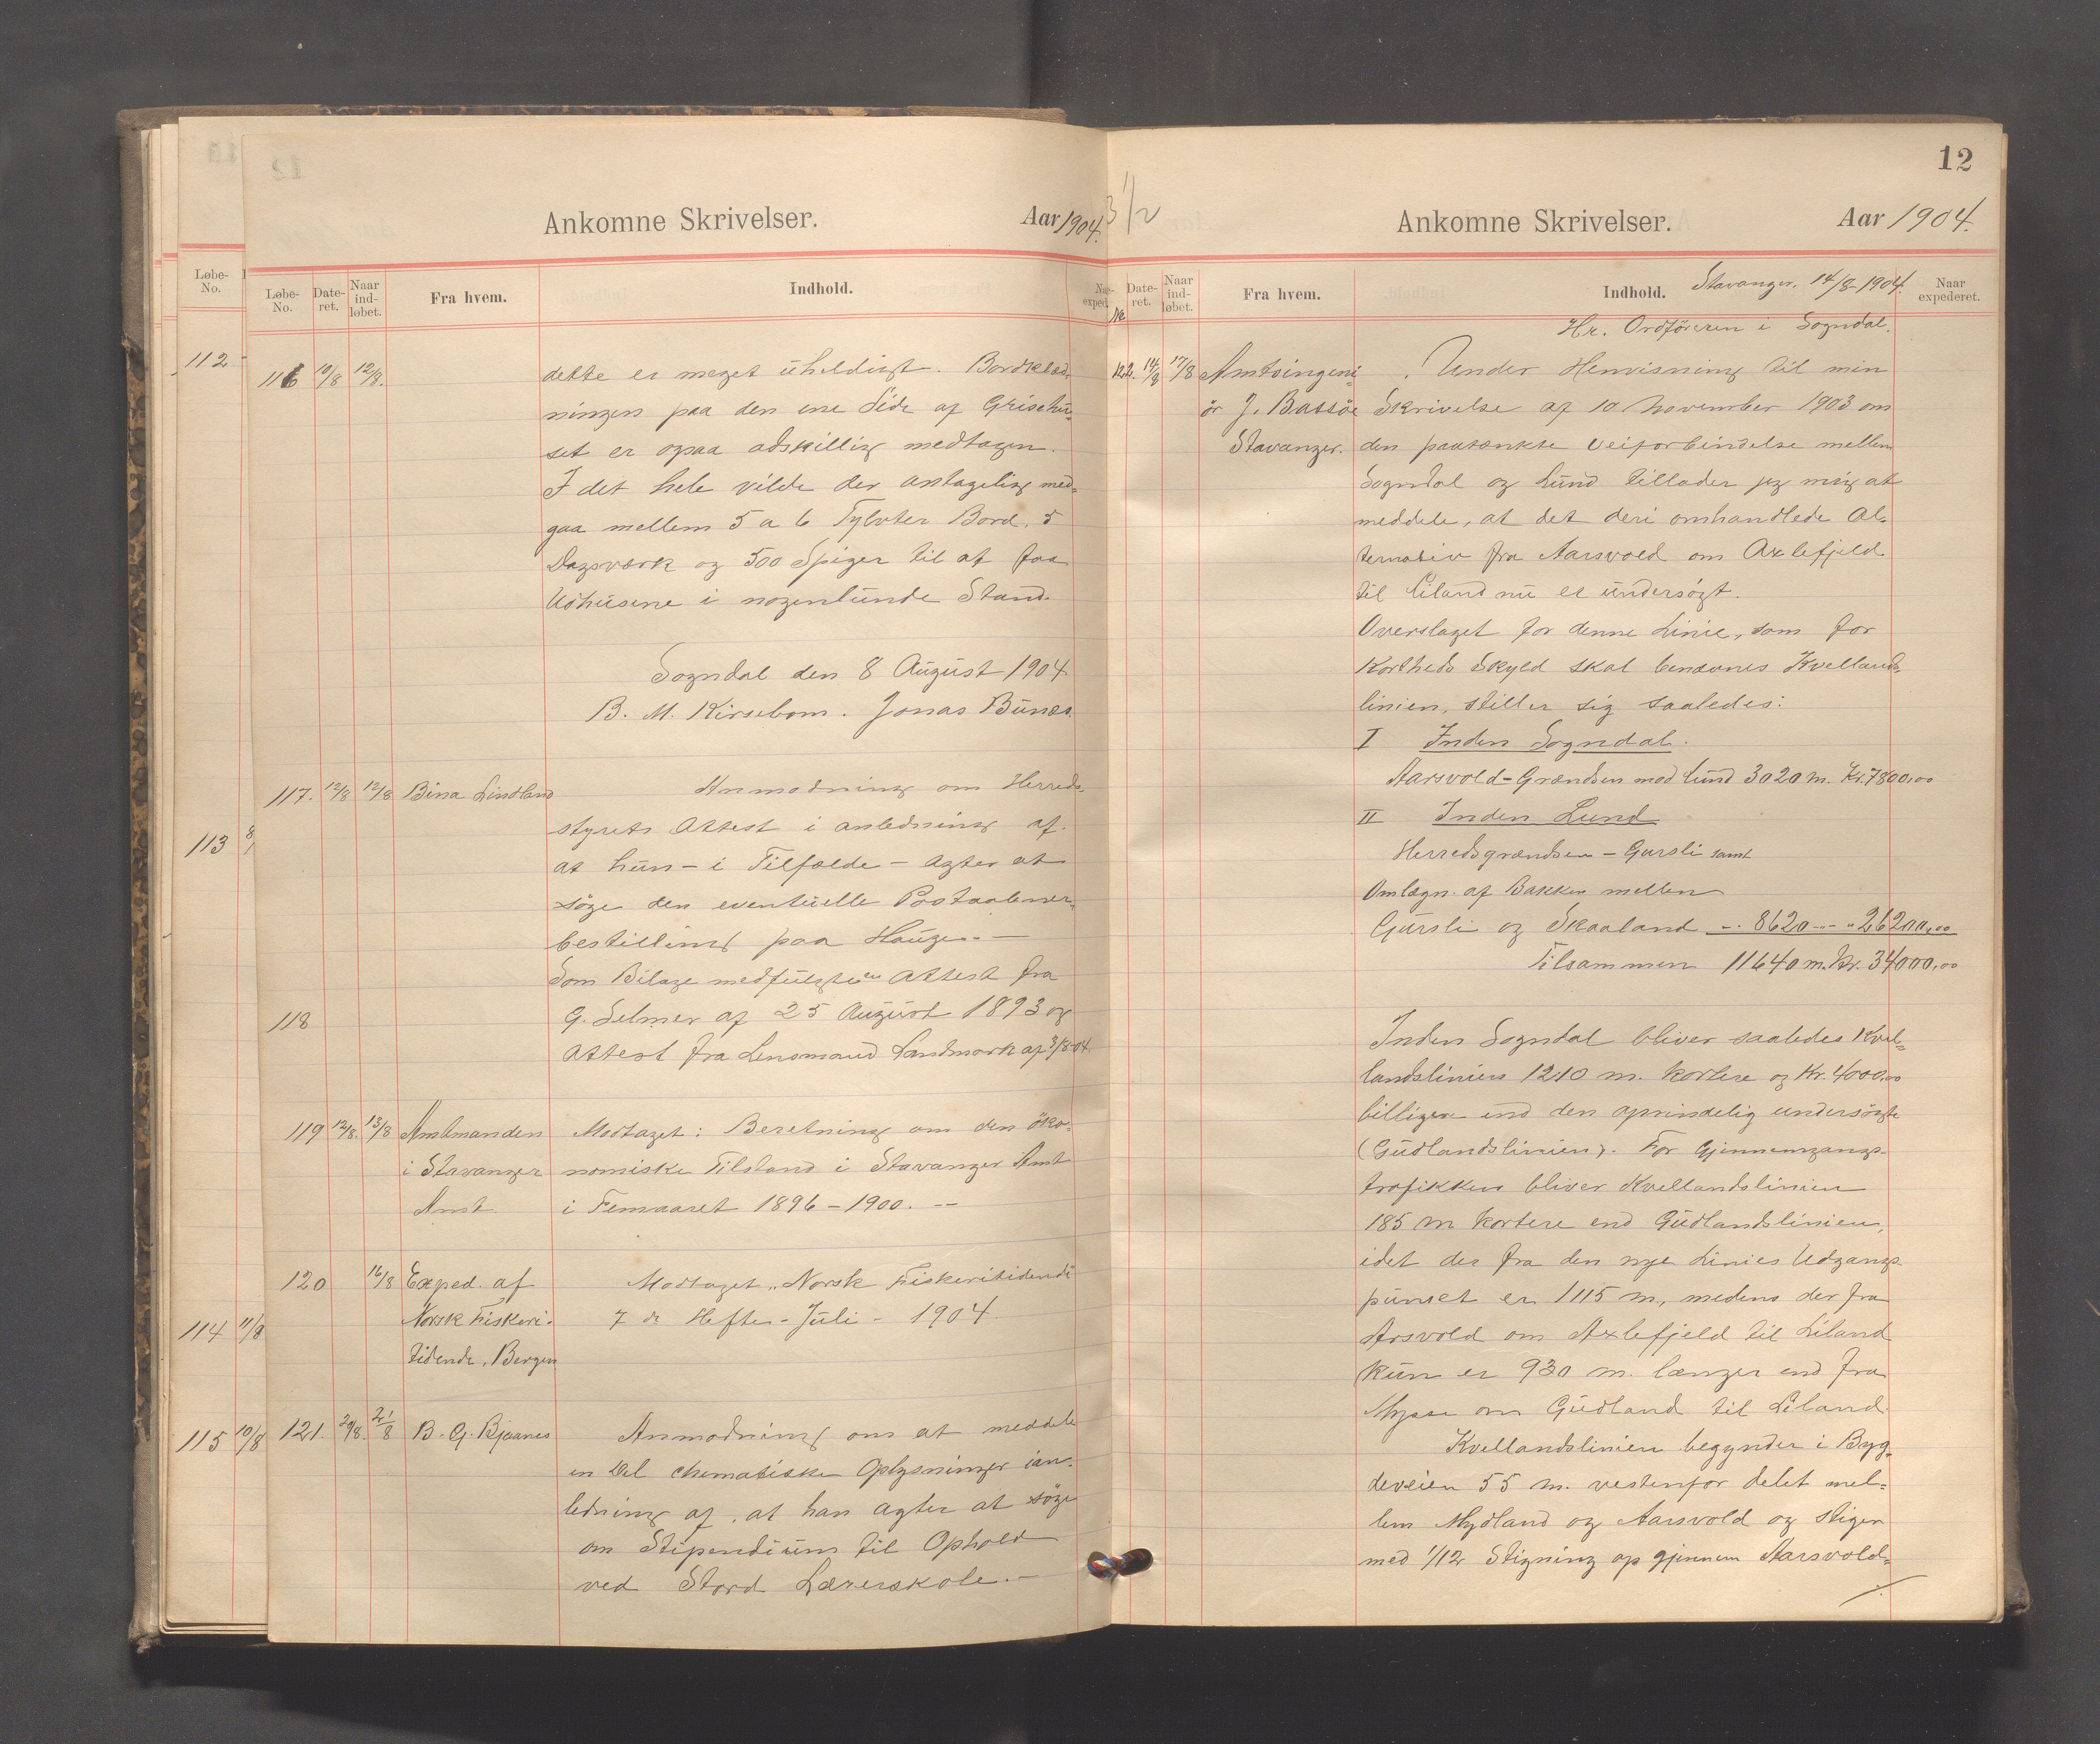 Ankomne Skrivelser. Aar 1904.
Løbe-No. Date-ret. Naar ind-løbet. Fra hvem. Indhold.
112
116 10/8 12/8.
dette er meget uheldigt. Bordklæd-
ningen paa den ene Side af Grisehu-
set er ogsaa adskillig medtagen.
I det hele vilde der antagelig med-
gaa mellem 5 a 6 Tylvter Bord, 5
Dagsværk og 500 Spiger til at faa
Udhusene i nogenlunde Stand.
Sogndal den 8 August 1904
B. M. Kirsebom. Jonas Bunæs.
117. 12/8 12/8 Bina Lindland
Anmodning om Herreds-
styrets Attest i anledning af.
at hun - i Tilfælde - agter at
søge den eventuelle Postaabner-
bestilling paa Hauge. -
Som Bilage medfulgte en Attest fra
G. Selmer af 25 August 1893 og
Attest fra Lensmand Landmark af 3/8 04.
113
118
119 12/8. 13/8 Amtmanden
i Stavanger
Amt
Modtaget: Beretning om den öko-
nomiske Tilstand i Stavanger Amt
i Femaaret 1896 - 1900. --
120 16/8 Exped. af
Norsk Fiskeri-
tidende, Bergen
Modtaget "Norsk Fiskeritidende
7 de Hefte - Juli - 1904.
114 11/8
115 10/8
121. 20/8. 21/8 B. G. Bjaanes
Anmodning om at meddele
en Del chematiske Oplysninger i an-
ledning af, at han agter at søge
om Stipendium til Ophold
ved Stord Lærerskole. -
3 1/2
12
Ankomne Skrivelser. Aar 1904.
No Date-ret. Naar ind-løbet. Fra hvem. Indhold. Naar expederet.
Stavanger, 14/8 1904.
Hr. Ordföreren i Sogndal.
122. 14/8 17/8 Amtsingeni-
ör J. Bassöe
Stavanger.
Under Henvisning til min
Skrivelse af 10 November 1903 om
den paatænkte Veiforbindelse mellem
Sogndal og Lund tillader jeg mig at
meddele, at det deri omhandlede Al-
ternativ fra Aarsvold om Axlefjeld
til Eiland nu er undersøgt.
Overslaget for denne Linie, som for
Kortheds Skyld skal benævnes Kvellands-
linien, stiller sig saaledes:
I Inden Sogndal.
Aarsvold - Grændsen mod Lund 3020 m. Kr. 7800,00
II Inden Lund
Herredsgrændsen - Gursli samt
Omlægn. af Bakken mellem
Gursli og Skaaland -.. 8620 --- " 26200,00
Tilsammen 11640 m. Kr. 34000,00
Inden Sogndal bliver saaledes Kvel-
landslinien 1210 m. kortere og Kr. 4000,00
billigere end den oprindelig undersøgte
(Gudlandslinien). For Gjennemgangs-
trafikken bliver Kvellandslinien
185 m kortere end Gudlandslinien,
idet der fra den nye Linies Udgangs-
punkt er 1115 m, medens der fra
Arsvold om Axlefjeld til Eiland
kun er 930 m. længer end fra
Mysse om Gudland til Eiland.
Kvellandslinien begynder i Byg-
deveien 55 m. vestenfor delet mel-
lem Mydland og Aarsvold og stiger
med 1/12 Stigning op gjennem Aarsvold-